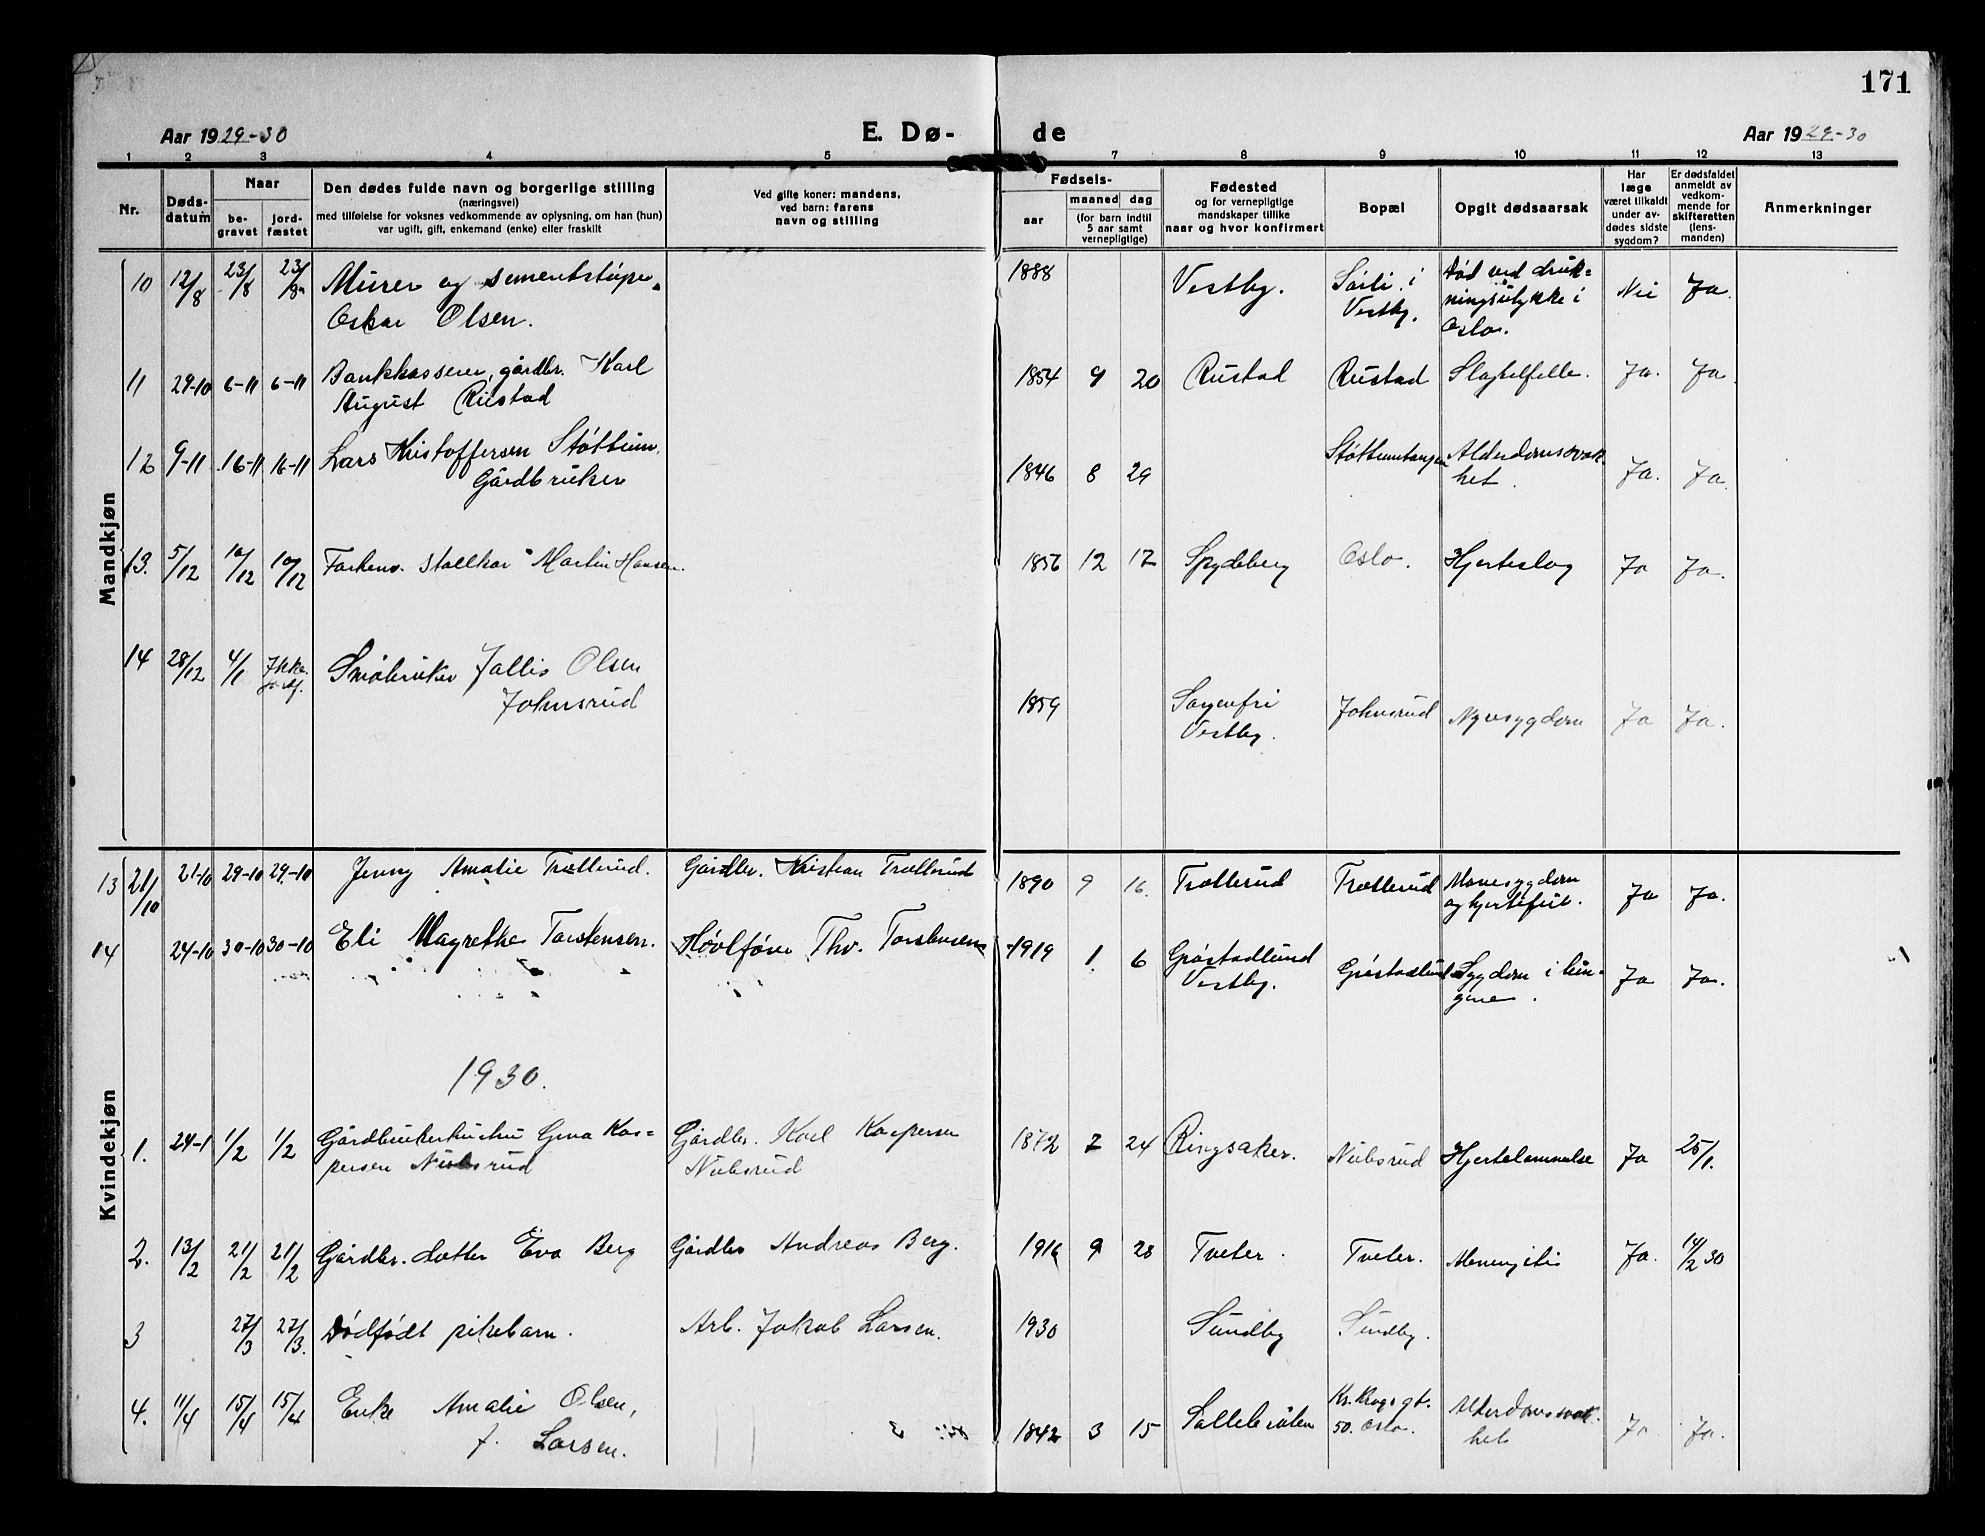 171
Aar 1929-30
E. Dø-
de
Aar 1929-30
1 2 3 4 5 7 8 9 10 11 12 13
Nr.
Døds-
datum
Naar
be-
gravet
jord-
fæstet
Den dødes fulde navn og borgerlige stilling
(næringsvei)
med tilføielse for voksnes vedkommende av oplysning, om han (hun)
var ugift, gift, enkemand (enke) eller fraskilt
Ved gifte koner: mandens,
ved barn: farens
navn og stilling
Fødsels-
aar
maaned dag
(for barn indtil
5 aar samt
vernepligtige)
Fødested
og for vernepligtige
mandskaper tillike
naar og hvor konfirmert
Bopæl
Opgit dødsaarsak
Har
læge
været tilkaldt
under av-
dødes sidste
sygdom?
Er dødsfaldet
anmeldt av
vedkom-
mende for
skifteretten
(lens-
manden)
Anmerkninger
Mandkjøn
10 12/8 23/8 23/8 Murer og sementstøper
Oskar Olsen.
1888 Vestby. i
Vestby. Død ved druk-
ningsulykke i
Oslo. Nei Ja.
11 29-10 6-11 6-11 Bankkasserer, gårdbr. Karl
August Rustad
1854 9 20 Rustad Rustad Slagtilfelle. Ja. Ja.
12 9-11 16-11 16-11 Lars Kristoffersen Støttum.
Gårdbruker
1846 8 29 Støttumtangen Alderdomssvak-
het. Ja. Ja.
13. 5/12 10/12 10/12 Martin Hansen.
12 17 Spydeberg Oslo. Hjerteslag Ja Ja.
14 28/12 4/1 Ikke
jordf. Småbruker Jallis Olsen
Johnsrud
1859 Sorgenfri
Vestby. Johnsrud Nyresygdom Ja Ja.
Kvindekjøn
13 21/10 21-10 29-10 29-10 Jenny Amalie Trætterud. Gårdbr. Kristian Trætterud
1890 9 16. Trætterud Trætterud Mavesygdom
og hjertefeil. Ja Ja.
14 24-10 30-10 30-10 Eli Magrethe Torstensen. Høvlfører Thv. Torstensen
1919 1 6 Grøstadlund
Vestby. Grøstadlund Sygdom i lun-
gene. Ja Ja.
1930.
1. 24-1 1/2 1/2 Gårdbrukerhustru Gina Kas-
persen Nubsrud Gårdbr. Karl Kaspersen
Nubsrud
1872 2 24 Ringsaker. Nubsrud Hjertelammelse Ja 25/1.
2. 13/2 21/2 21/2 Gårdbr. datter Eva Berg Gårdbr Andreas Berg.
1916 9 28 Tveter. Tveter. Meningitis Ja. 14/2 30
3 27/3 27/3. Dødfødt pikebarn. Arb. Jakob Larsen.
1930 Sundby Sundby.
4. 11/4 15/4 15/4 Enke Amalie Olsen,
f. Larsen.
1842 3 15 Kr. Krogs gt.
50. Oslo. Alderdomssvak-
het Ja. Ja.